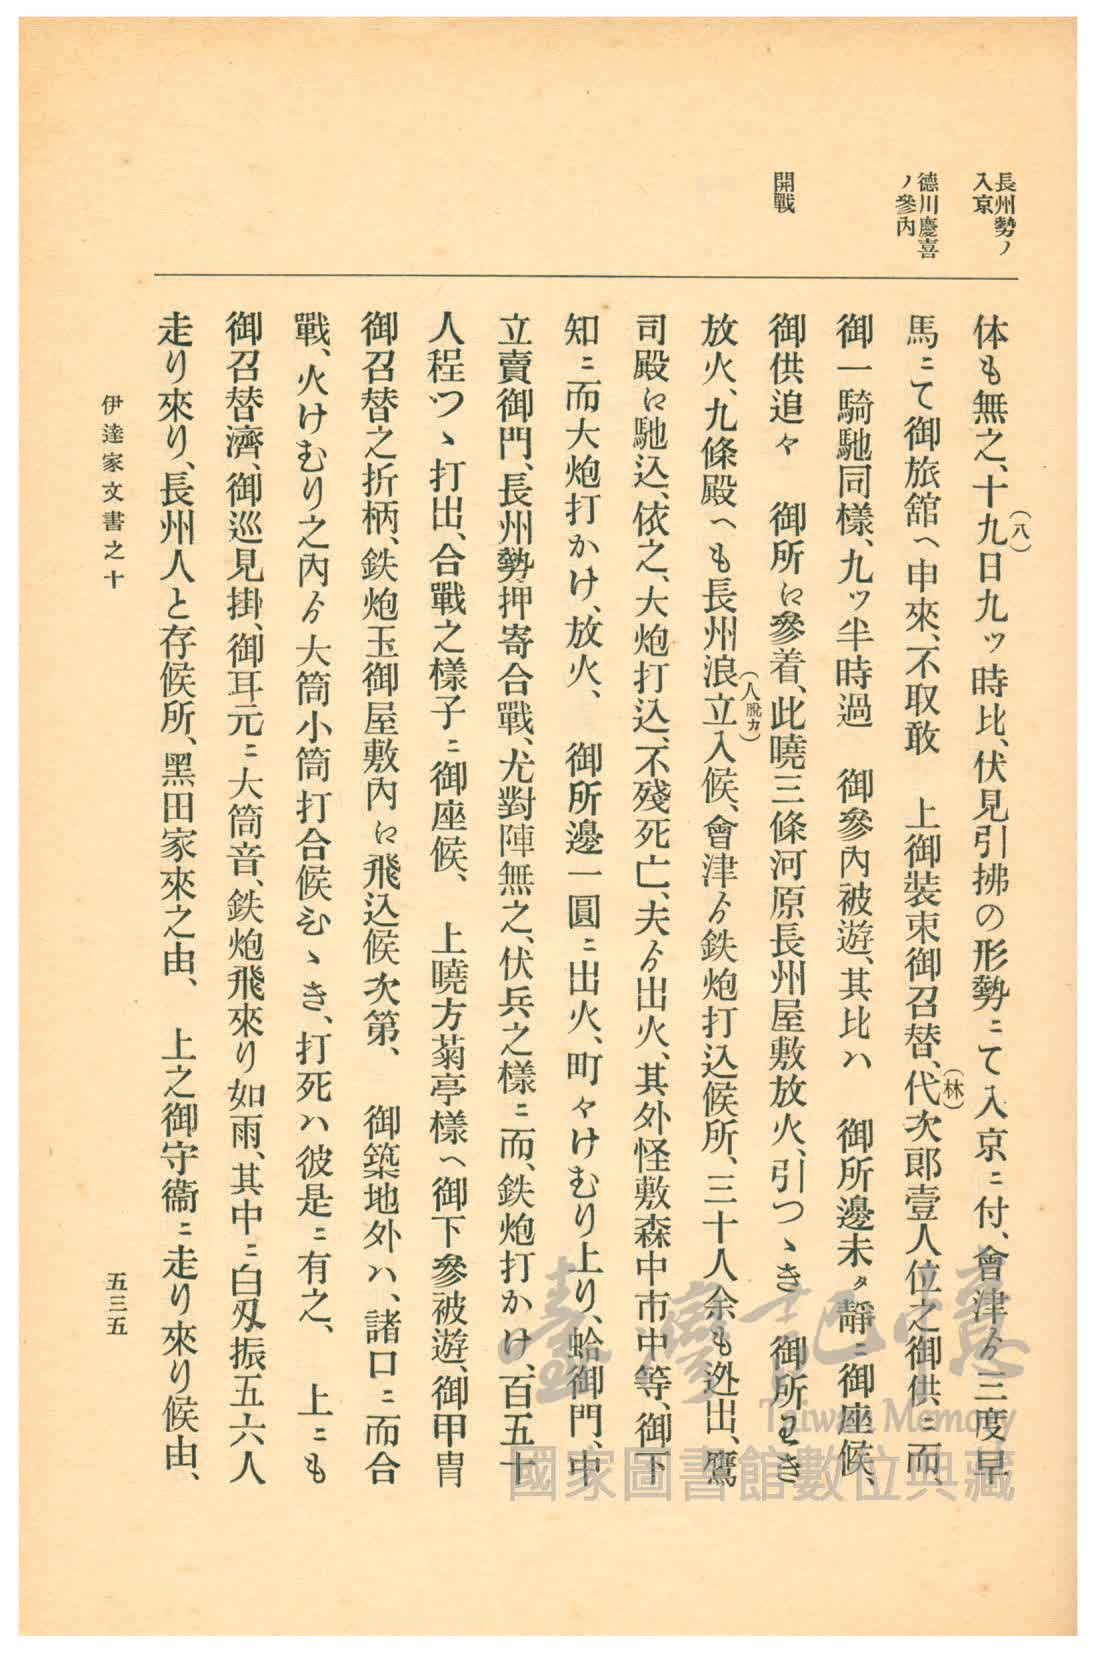 長州勢ノ
入京
德川慶喜
ノ參內
開戰
体も無之、十九日九ッ時比、伏見引拂の形勢ニて入京ニ付、會津ゟ三度早
(八)
馬ニて御旅舘ヘ申來、不取敢　上御裝束御召替、代次郎壹人位之御供ニ而、
(林)
御一騎馳同樣、九ッ半時過　御參內被遊、其比ハ　御所邊未タ靜ニ御座候、
御供追々　御所に參着、此曉三條河原長州屋敷放火、引つゝき　御所わき
放火、九條殿ヘも長州浪立入候、會津ゟ鉄炮打込候所、三十人余も迯出、鷹
(人脫カ)
司殿に馳込、依之、大炮打込、不殘死亡、夫ゟ出火、其外怪敷森中市中等、御下
知ニ而大炮打かけ、放火、　御所邊一圓ニ出火、町々けむり上り、蛤御門、中
立賣御門、長州勢押寄合戰、尤對陣無之、伏兵之樣ニ而、鉄炮打かけ、百五十
人程つゝ打出、合戰之樣子ニ御座候、　上曉方菊亭樣ヘ御下參被遊、御甲冑
御召替之折柄、鉄炮玉御屋敷內に飛込候次第、　御築地外ハ、諸口ニ而合
戰、火けむり之內ゟ大筒小筒打合候ひゝき、打死ハ彼是ニ有之、　上ニも
御召替濟、御巡見掛、御耳元ニ大筒音、鉄炮飛來り如雨、其中ニ白刄振五六人
走り來り、長州人と存候所、黑田家來之由、　上之御守衞ニ走り來り候由、
伊達家文書之十
五三五
臺灣記憶
Taiwan Memory
國家圖書館數位典藏